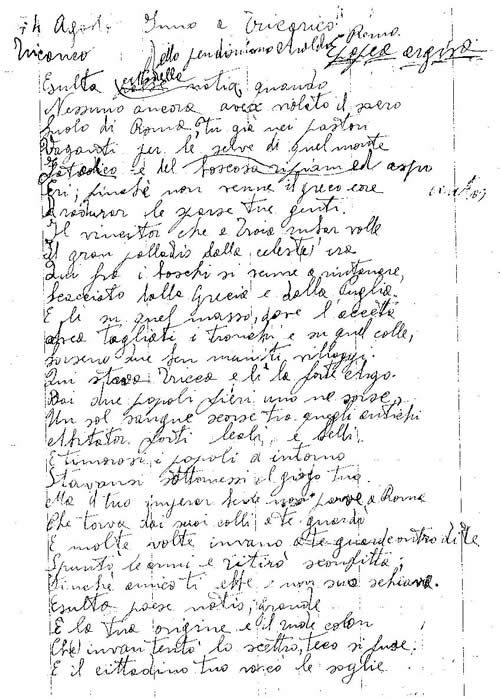 14 Agost. Inno a Tricarico
Tricarico Dello pendinciano Roma.
Esulta natia, quando
Nessuno ancora avea violato il sacro
suolo di Roma, tu già nei pastori
Vaganti per le selve di quel monte
e del boscoso ed aspro
Eri, finchè non venne il greco eroe
a radunar le sparse tue genti.
Il vincitor che a Troia rubar volle
Il gran palladio dalla celeste ira
Qui fra i boschi si venne a rintanare,
Scacciato dalla Grecia e dalla Puglia.
E lì su quel masso, dove l'accetta
avea tagliati i tronchi e su quel colle,
sorsero due ben muniti villaggi.
Qui stava Tricca e lì la forte Argo.
Dai due popoli fieri uno ne sorse,
Un sol sangue scorse tra quegli antichi
Abitator forti leali e belli.
E timorosi i popoli d'intorno
Stavansi sottomessi al giogo tuo.
Ma il tuo imperar a Roma
Che torva dai suoi colli a te guardò
E molte volte invano contro di te
Spuntò le armi e ritirò sconfitta;
Finchè amica ti ebbe e non sua schiava.
Esulta paese natio, grande
È la tua origine e il
Che invan tentò lo scettro teco si fuse.
E il cittadino tuo varcò le soglie